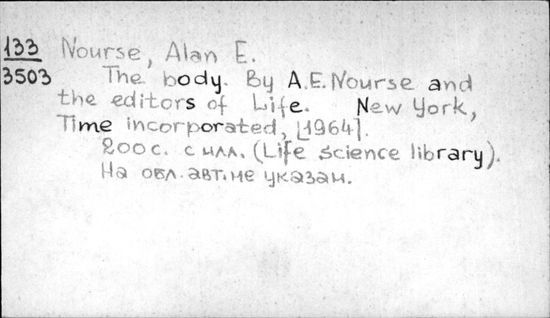 133 Nourse, Alan E.
3503 The body. By A.E. Nourse and
the editors of Life. New York,
Time incorporated, [1964].
200 с. с илл. (Life science library).
На обл. авт. не указан.